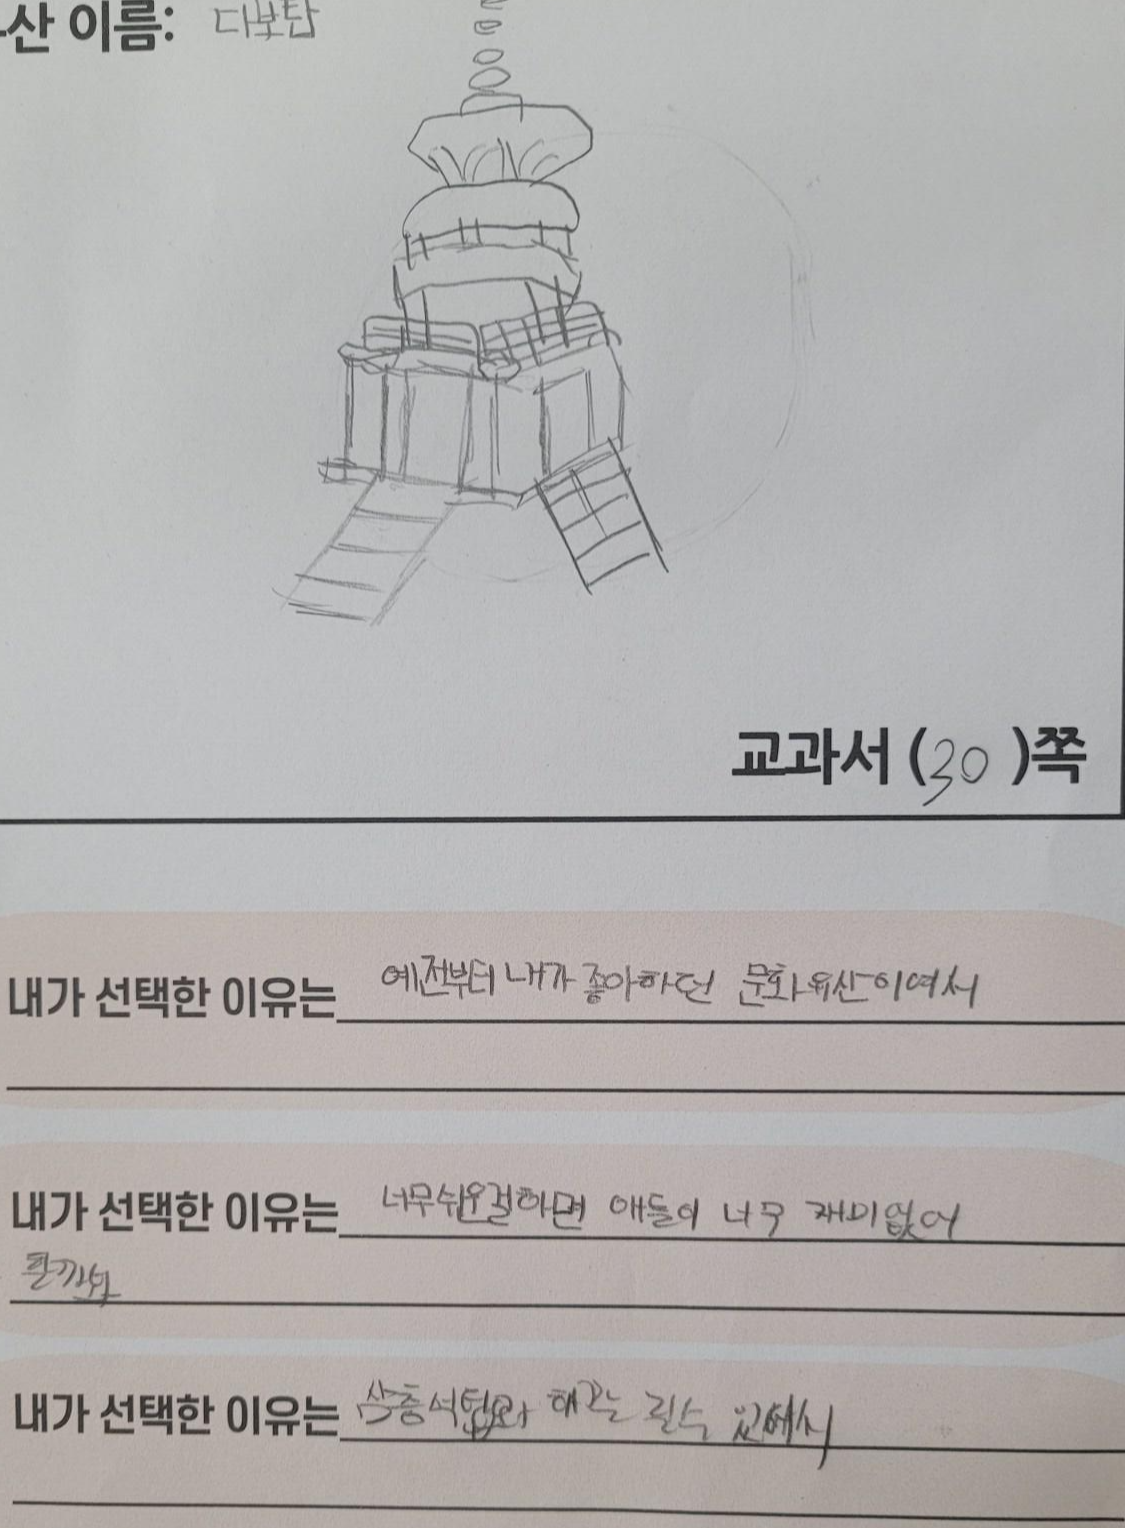 산 이름: 디보탑
교과서 (30)쪽
내가 선택한 이유는 예전부터 내가 좋아하던 문화유산이여서
내가 선택한 이유는 너무 쉬운걸하면 애들이 너무 재미없어
할까봐
내가 선택한 이유는 삼층석탑와